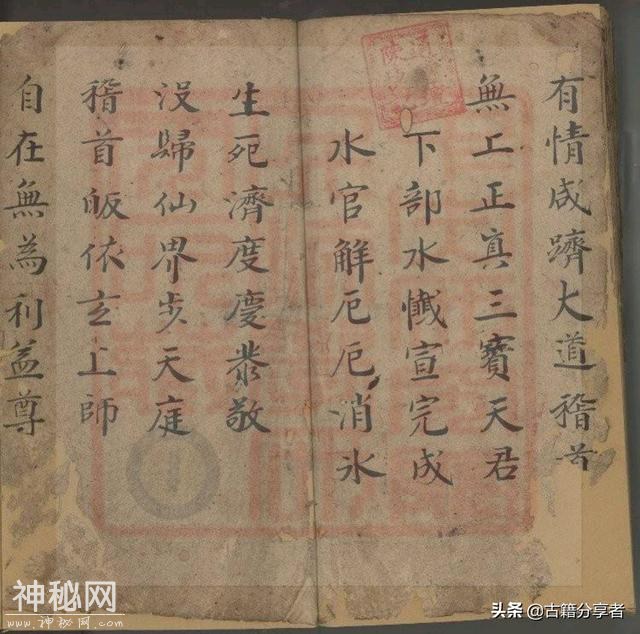 有情咸躋大道稽首
無上正真三寶天君
下部水懺宣完成
水官解厄厄消氷
生死濟度慶恭敬
没歸仙界步天庭
稽首皈依玄上師
自在無為利益尊
神秘网
www.神秘网.com
头条 @古籍分享者